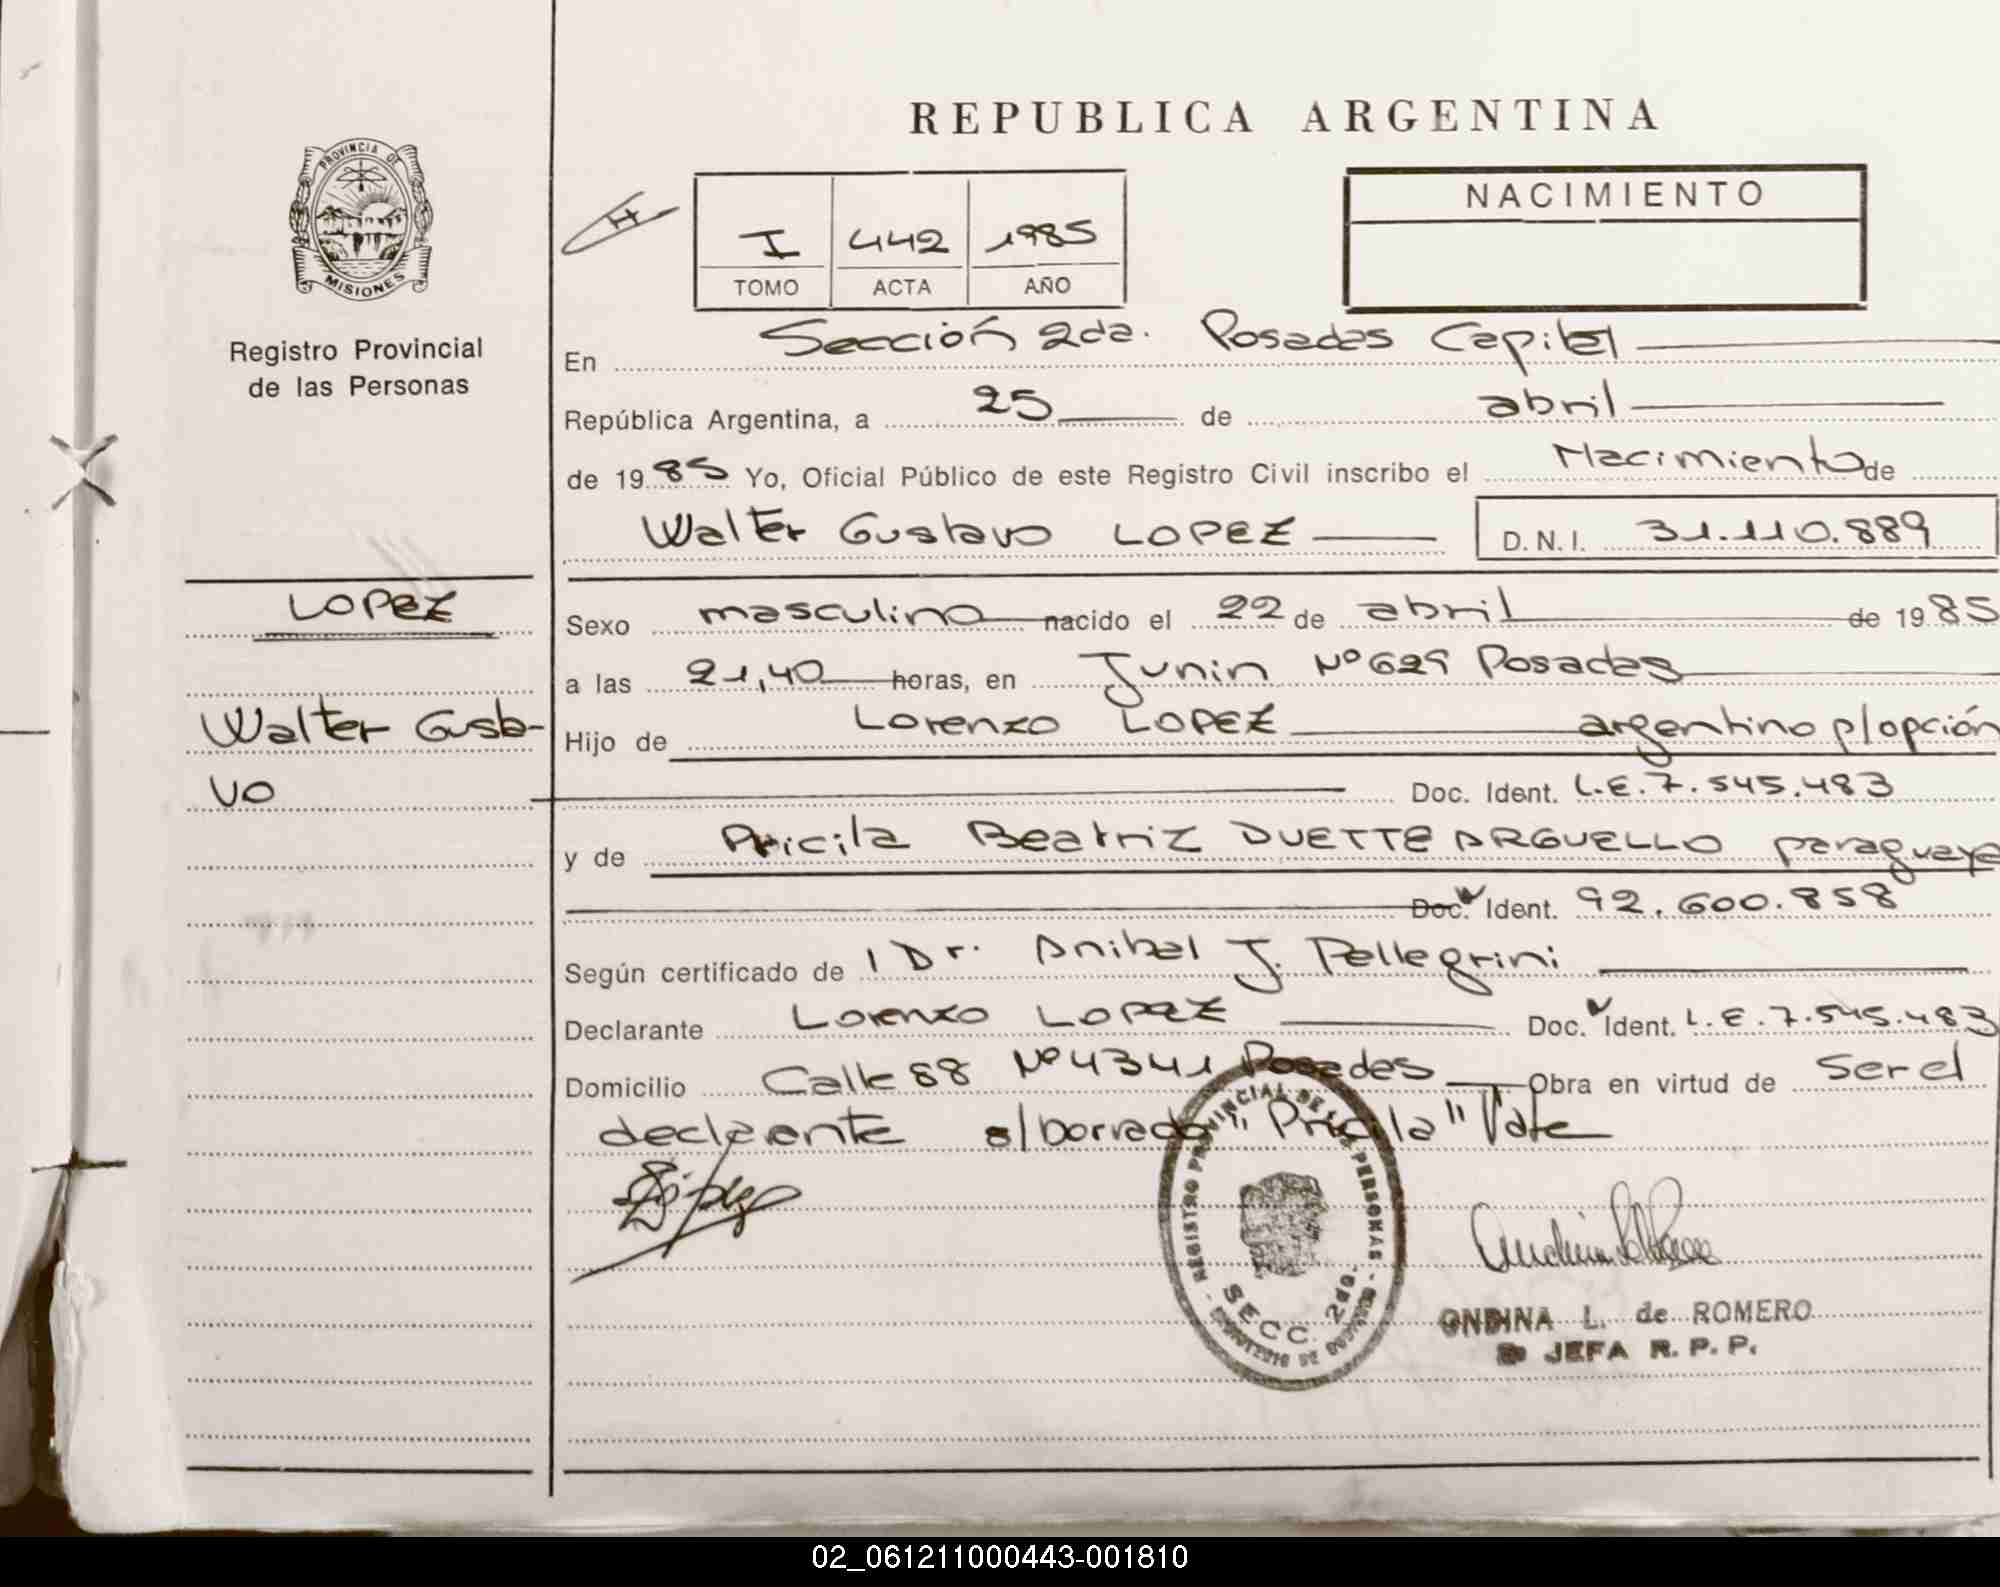 REPUBLICA ARGENTINA
PROVINCIA DE
MISIONES
Registro Provincial
de las Personas
I 442 1985
TOMO ACTA AÑO
NACIMIENTO
En Sección 2da. Posadas Capital
República Argentina, a 25 de abril
de 1985 Yo, Oficial Público de este Registro Civil inscribo el Nacimiento de
Walter Gustavo LOPEZ D.N.I. 31.110.889
LOPEZ
Walter Gusta-
vo
Sexo masculino nacido el 22 de abril de 1985
a las 21,40 horas, en Junin Nº 629 Posadas
Hijo de Lorenzo LOPEZ argentino p/opción
Doc. Ident. L.E. 7.545.483
y de Pricila Beatriz DUETTE ARGUELLO paraguaya
Doc. Ident. 92.600.858
Según certificado de l Dr. Anibal J. Pellegrini
Declarante Lorenzo LOPEZ Doc. Ident. L.E. 7.545.483
Domicilio Calle 88 Nº 4341 Posadas Obra en virtud de Ser el
declarante s/borrado "Pricila" Vale
REGISTRO PROVINCIAL DE LAS PERSONAS
SECC. 2da.
ONDINA L. de ROMERO
JEFA R. P. P.
02_061211000443-001810